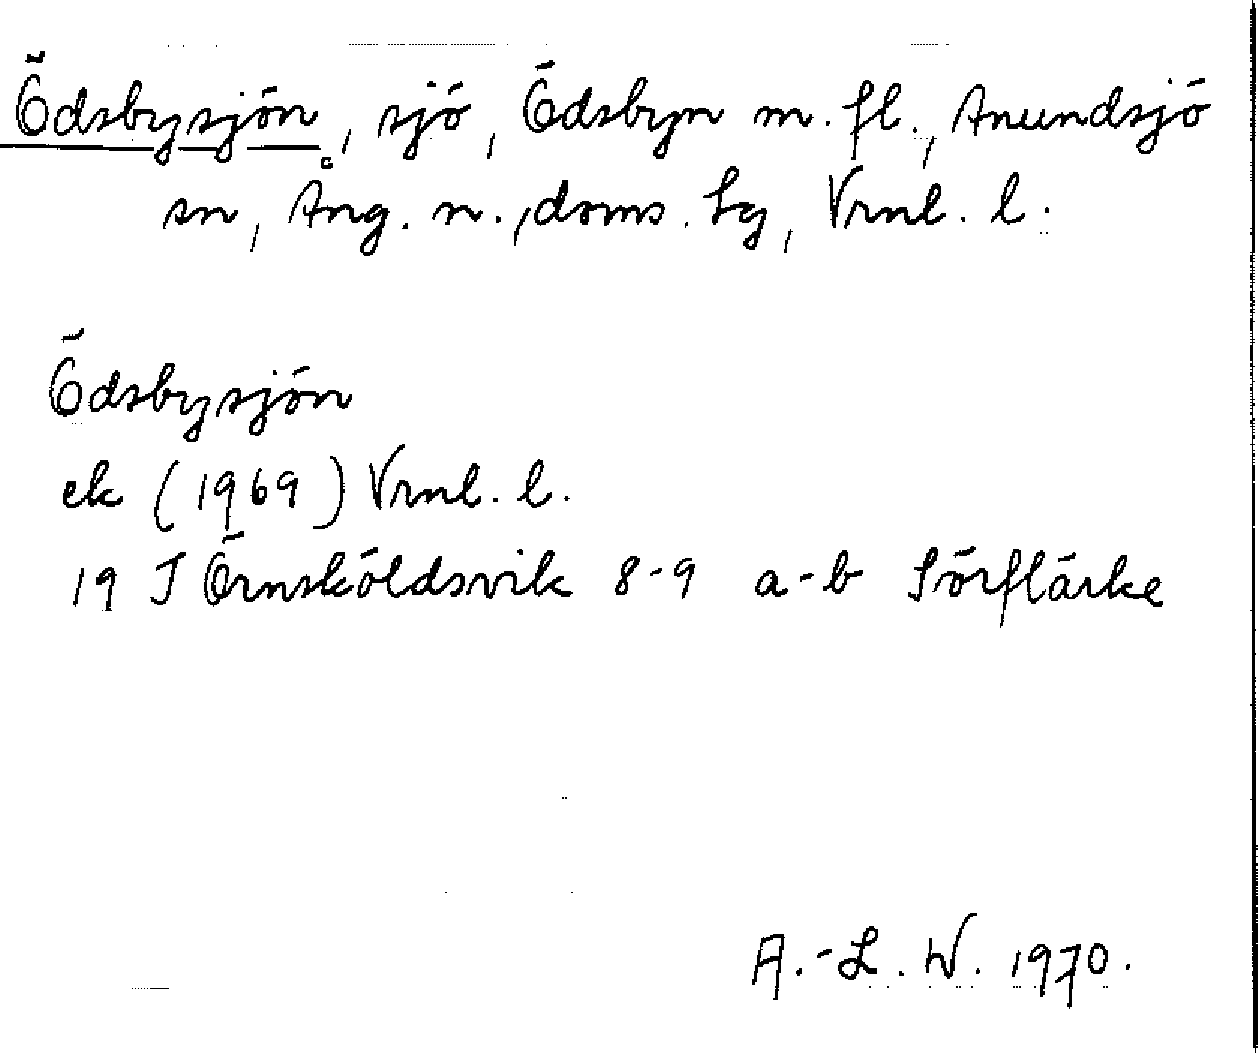 Ödsbysjön, sjö, Ödsbyn m. fl., Anundsjö
sn, Ång. n., doms. sg, Vrnl. l.
Ödsbysjön
ek (1969) Vrnl. l.
19 J Örnsköldsvik 8-9 a-b Sörflärke
A.-L. W. 1970.